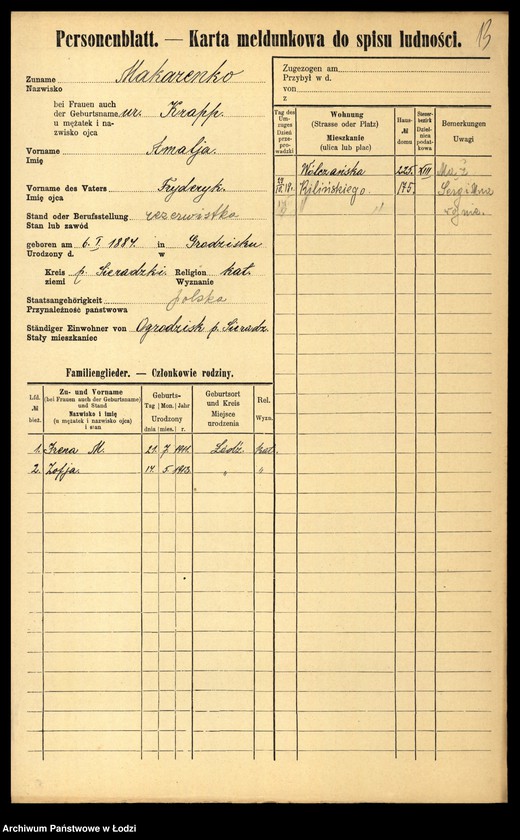 Personenblatt. — Karta meldunkowa do spisu ludności.
13
Zuname
Nazwisko
Makarenko
bei Frauen auch
der Geburtsname
u mężatek i na-
zwisko ojca
ur. Krapp.
Vorname
Imię
Amalja.
Vorname des Vaters
Imię ojca
Fryderyk.
Stand oder Berufsstellung
Stan lub zawód
rezerwistka
geboren am 6. I. 1887. in Grodzisku
Urodzony d. w
Kreis p. Sieradzki. Religion kat.
ziemi Wyznanie
Staatsangehörigkeit
Przynależność państwowa
polska
Ständiger Einwohner von Ogrodzisk p. Sieradz.
Stały mieszkaniec
Zugezogen am
Przybył w d.
von
z
Tag des Um-
zuges
Dzień
prze-
prowadzki
Wohnung
(Strasse oder Platz)
Mieszkanie
(ulica lub plac)
Haus-
№
domu
Steuer-
bezirk
Dziel-
nica
podat-
kowa
Bemerkungen
Uwagi
Wólczańska 225. XIII Mąż
18. Kilińskiego. 175.
" "
Familienglieder. — Członkowie rodziny.
Lfd.
№
bież.
Zu- und Vorname
(bei Frauen auch der Geburtsname)
und Stand
Nazwisko i imię
(u mężatek i nazwisko ojca)
i stan
Geburts-
Tag Mon. Jahr
Urodzony
dnia mies. r.
Geburtsort
und Kreis
Miejsce
urodzenia
Rel.
Wyzn.
1. Irena M. 21. 7. 1911. Łódź kat.
2. Zofja. 14. 5. 1913. " "
Archiwum Państwowe w Łodzi